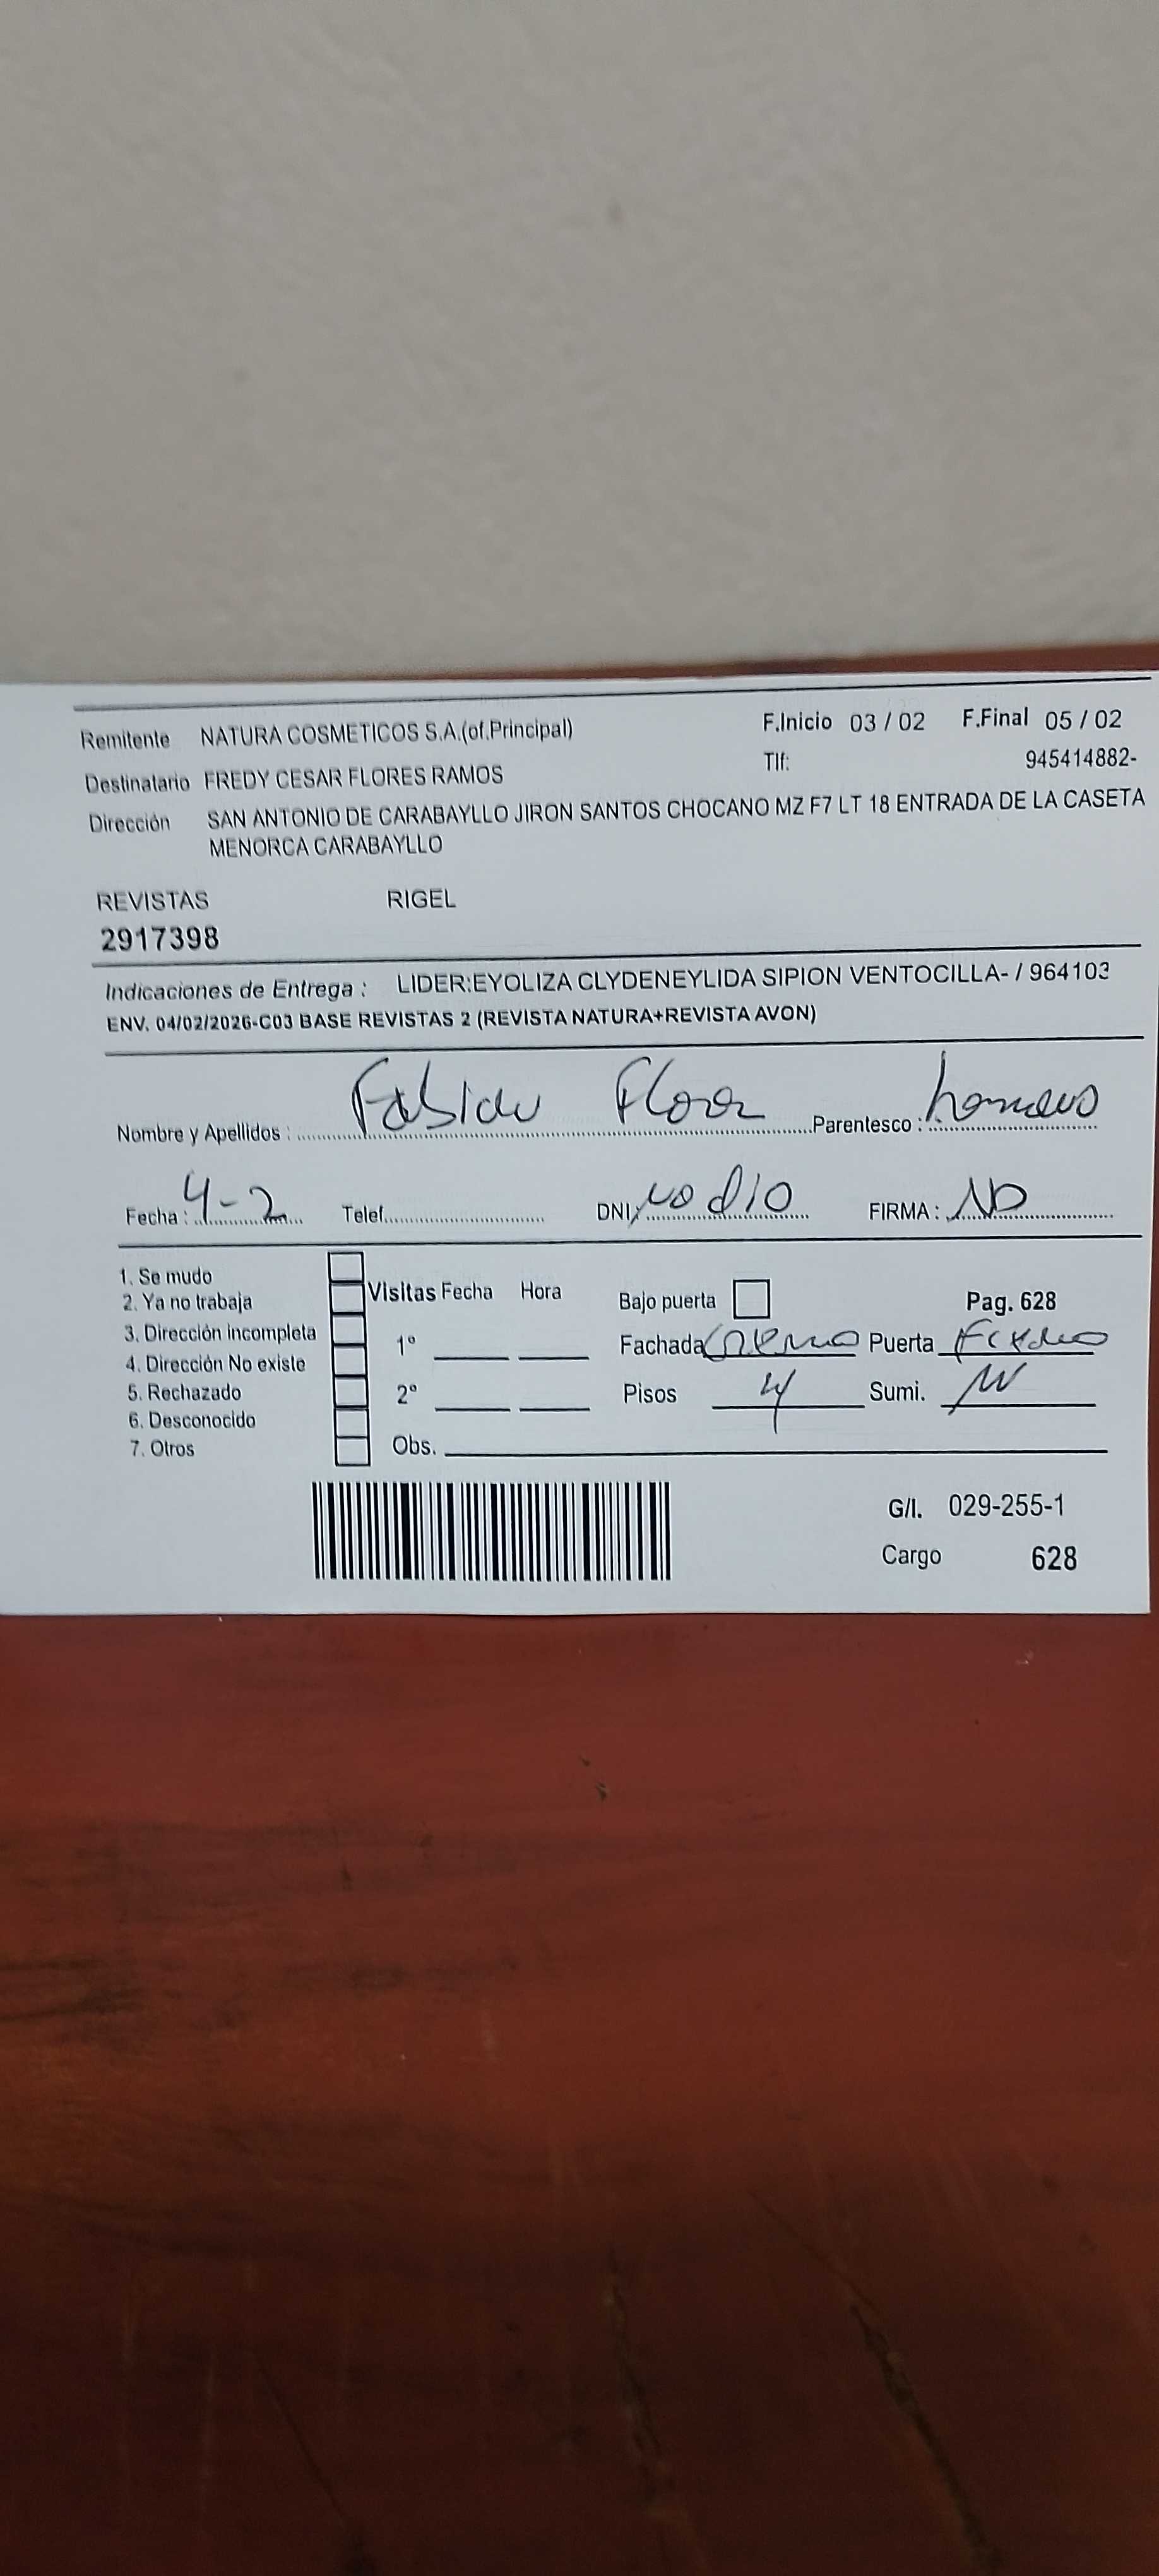 Remitente NATURA COSMETICOS S.A.(of.Principal) F.Inicio 03 / 02 F.Final 05 / 02
Destinatario FREDY CESAR FLORES RAMOS Tlf: 945414882-
Dirección SAN ANTONIO DE CARABAYLLO JIRON SANTOS CHOCANO MZ F7 LT 18 ENTRADA DE LA CASETA
MENORCA CARABAYLLO
REVISTAS RIGEL
2917398
Indicaciones de Entrega : LIDER:EYOLIZA CLYDENEYLIDA SIPION VENTOCILLA- / 964103
ENV. 04/02/2026-C03 BASE REVISTAS 2 (REVISTA NATURA+REVISTA AVON)
Nombre y Apellidos : Parentesco :
Fecha : 4-2 Telef. DNI no dio FIRMA :
1. Se mudo
2. Ya no trabaja
3. Dirección incompleta
4. Dirección No existe
5. Rechazado
6. Desconocido
7. Otros
Visitas Fecha Hora
1º
2º
Obs.
Bajo puerta Pag. 628
Fachada Puerta
Pisos 4 Sumi.
G/I. 029-255-1
Cargo 628